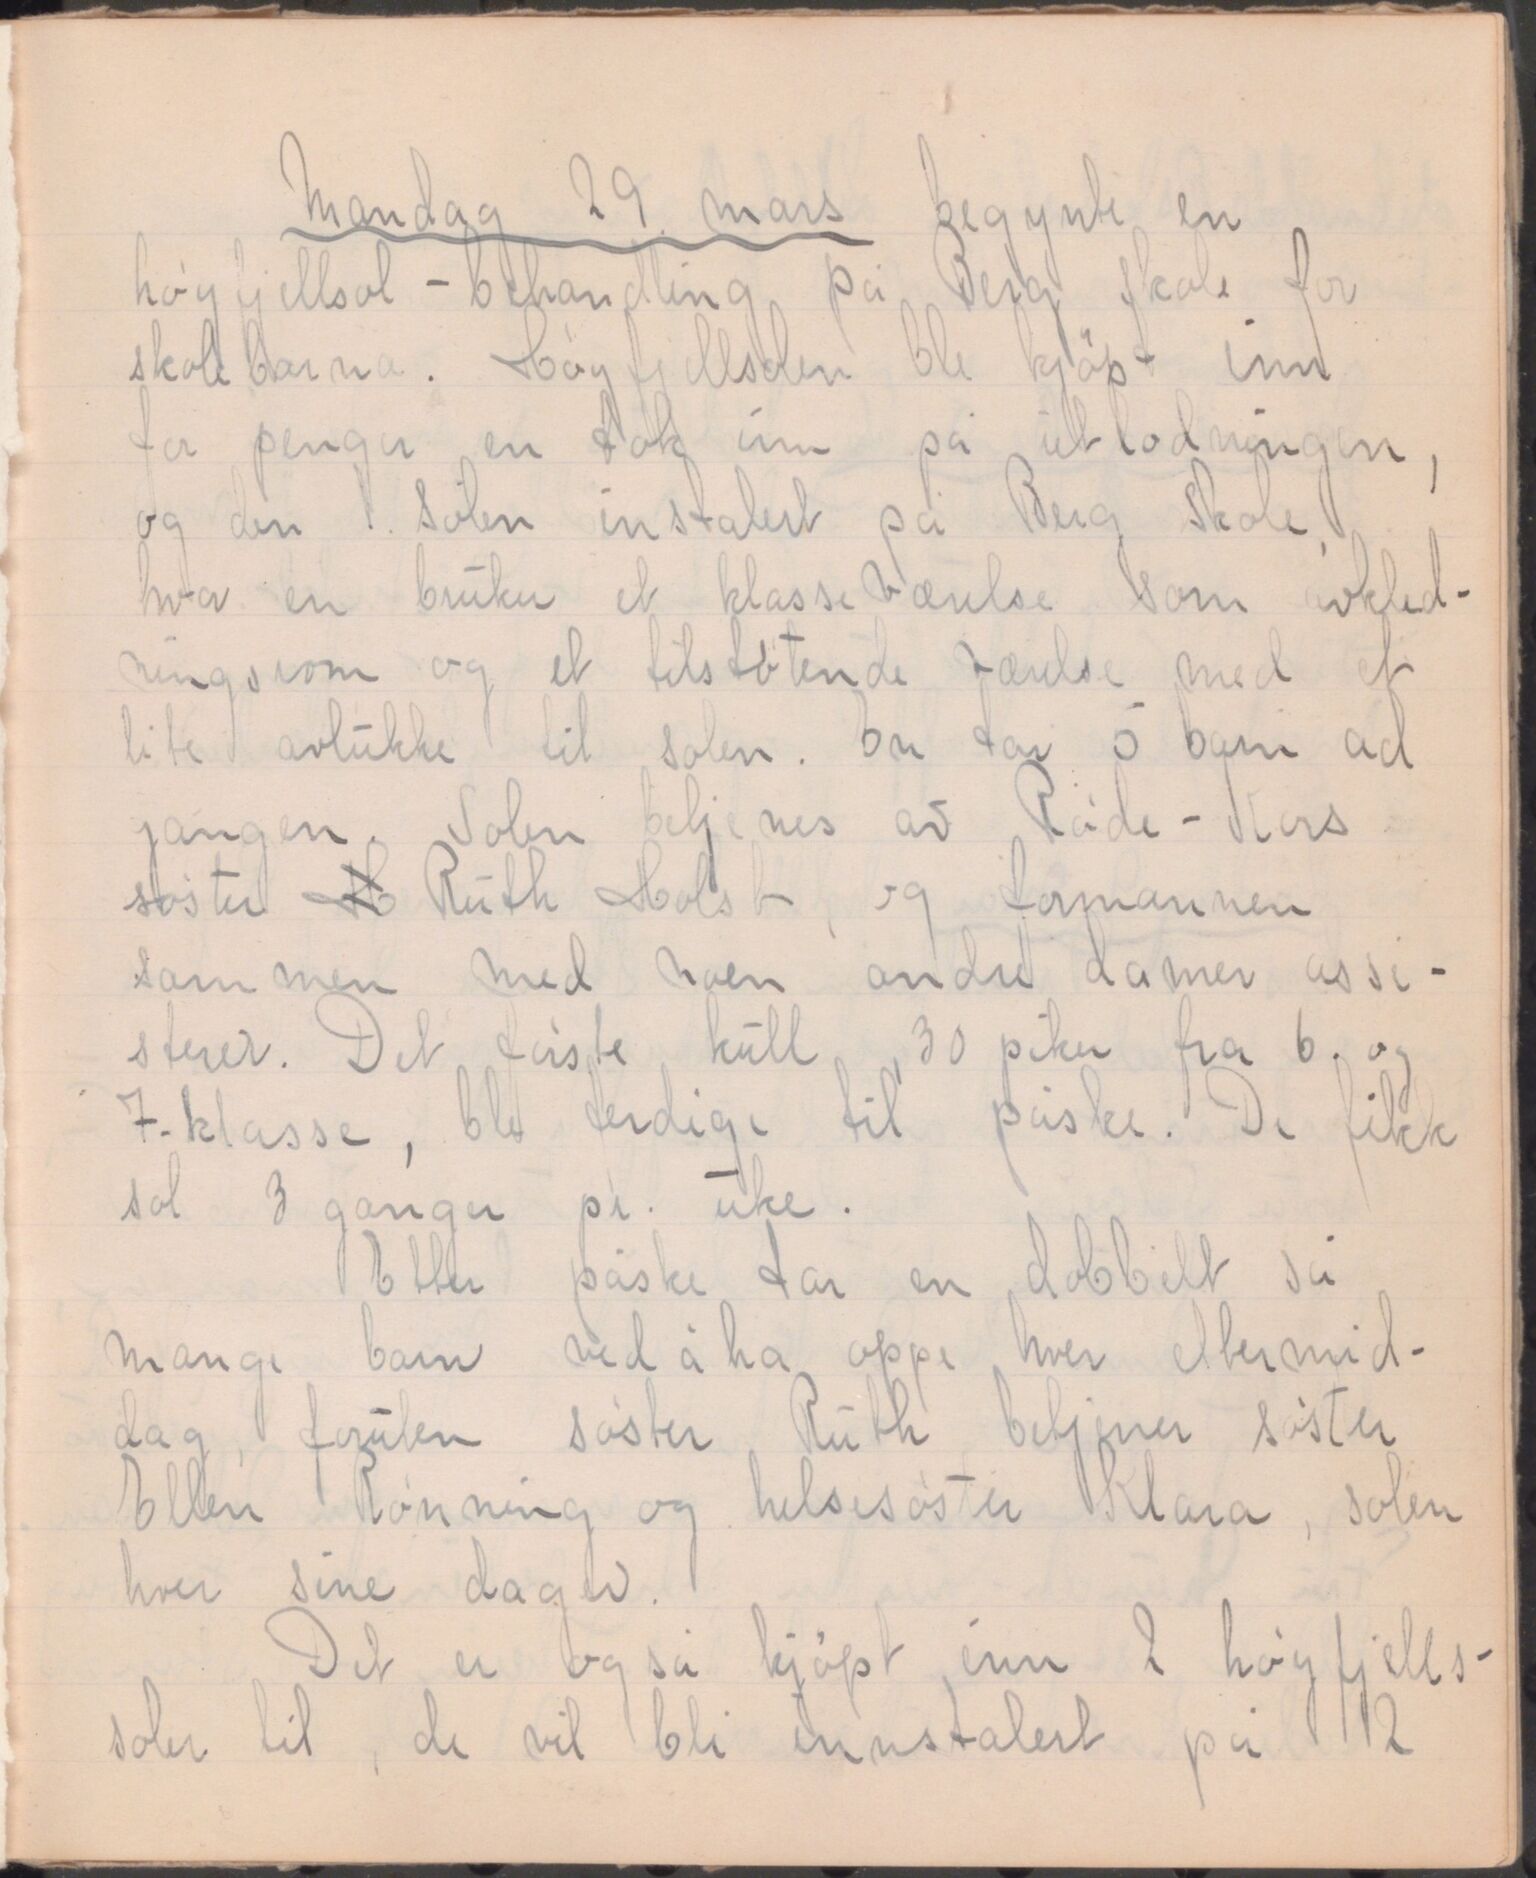 Mandag 29. mars begynte en
høyfjellsol-behandling på Berg skole for
skolebarna. Høyfjellsolen ble kjøpt inn
for penger en tok inn på utlodningen,
og den 1. solen instalert på Berg skole,
hvor en bruker et klasseværelse som avkled-
ningsrom og et tilstøtende værelse med et
lite avlukke til solen. En tar 5 barn ad
gangen. Solen betjenes av Røde-Kors
søster Ruth Holst, og formannen
sammen med noen andre damer assi-
sterer. Det første kull, 30 piker fra 6. og
7. klasse, ble ferdige til påske. De fikk
sol 3 ganger pr. uke.
Etter påske tar en dobbelt så
mange barn ved å ha oppe hver ettermid-
dag, foruten søster Ruth betjener søster
Ellen Rønning og helsesøster Klara, solen
hver sine dager.
Det er også kjøpt inn 2 høyfjells-
soler til, de vil bli innstalert på 2